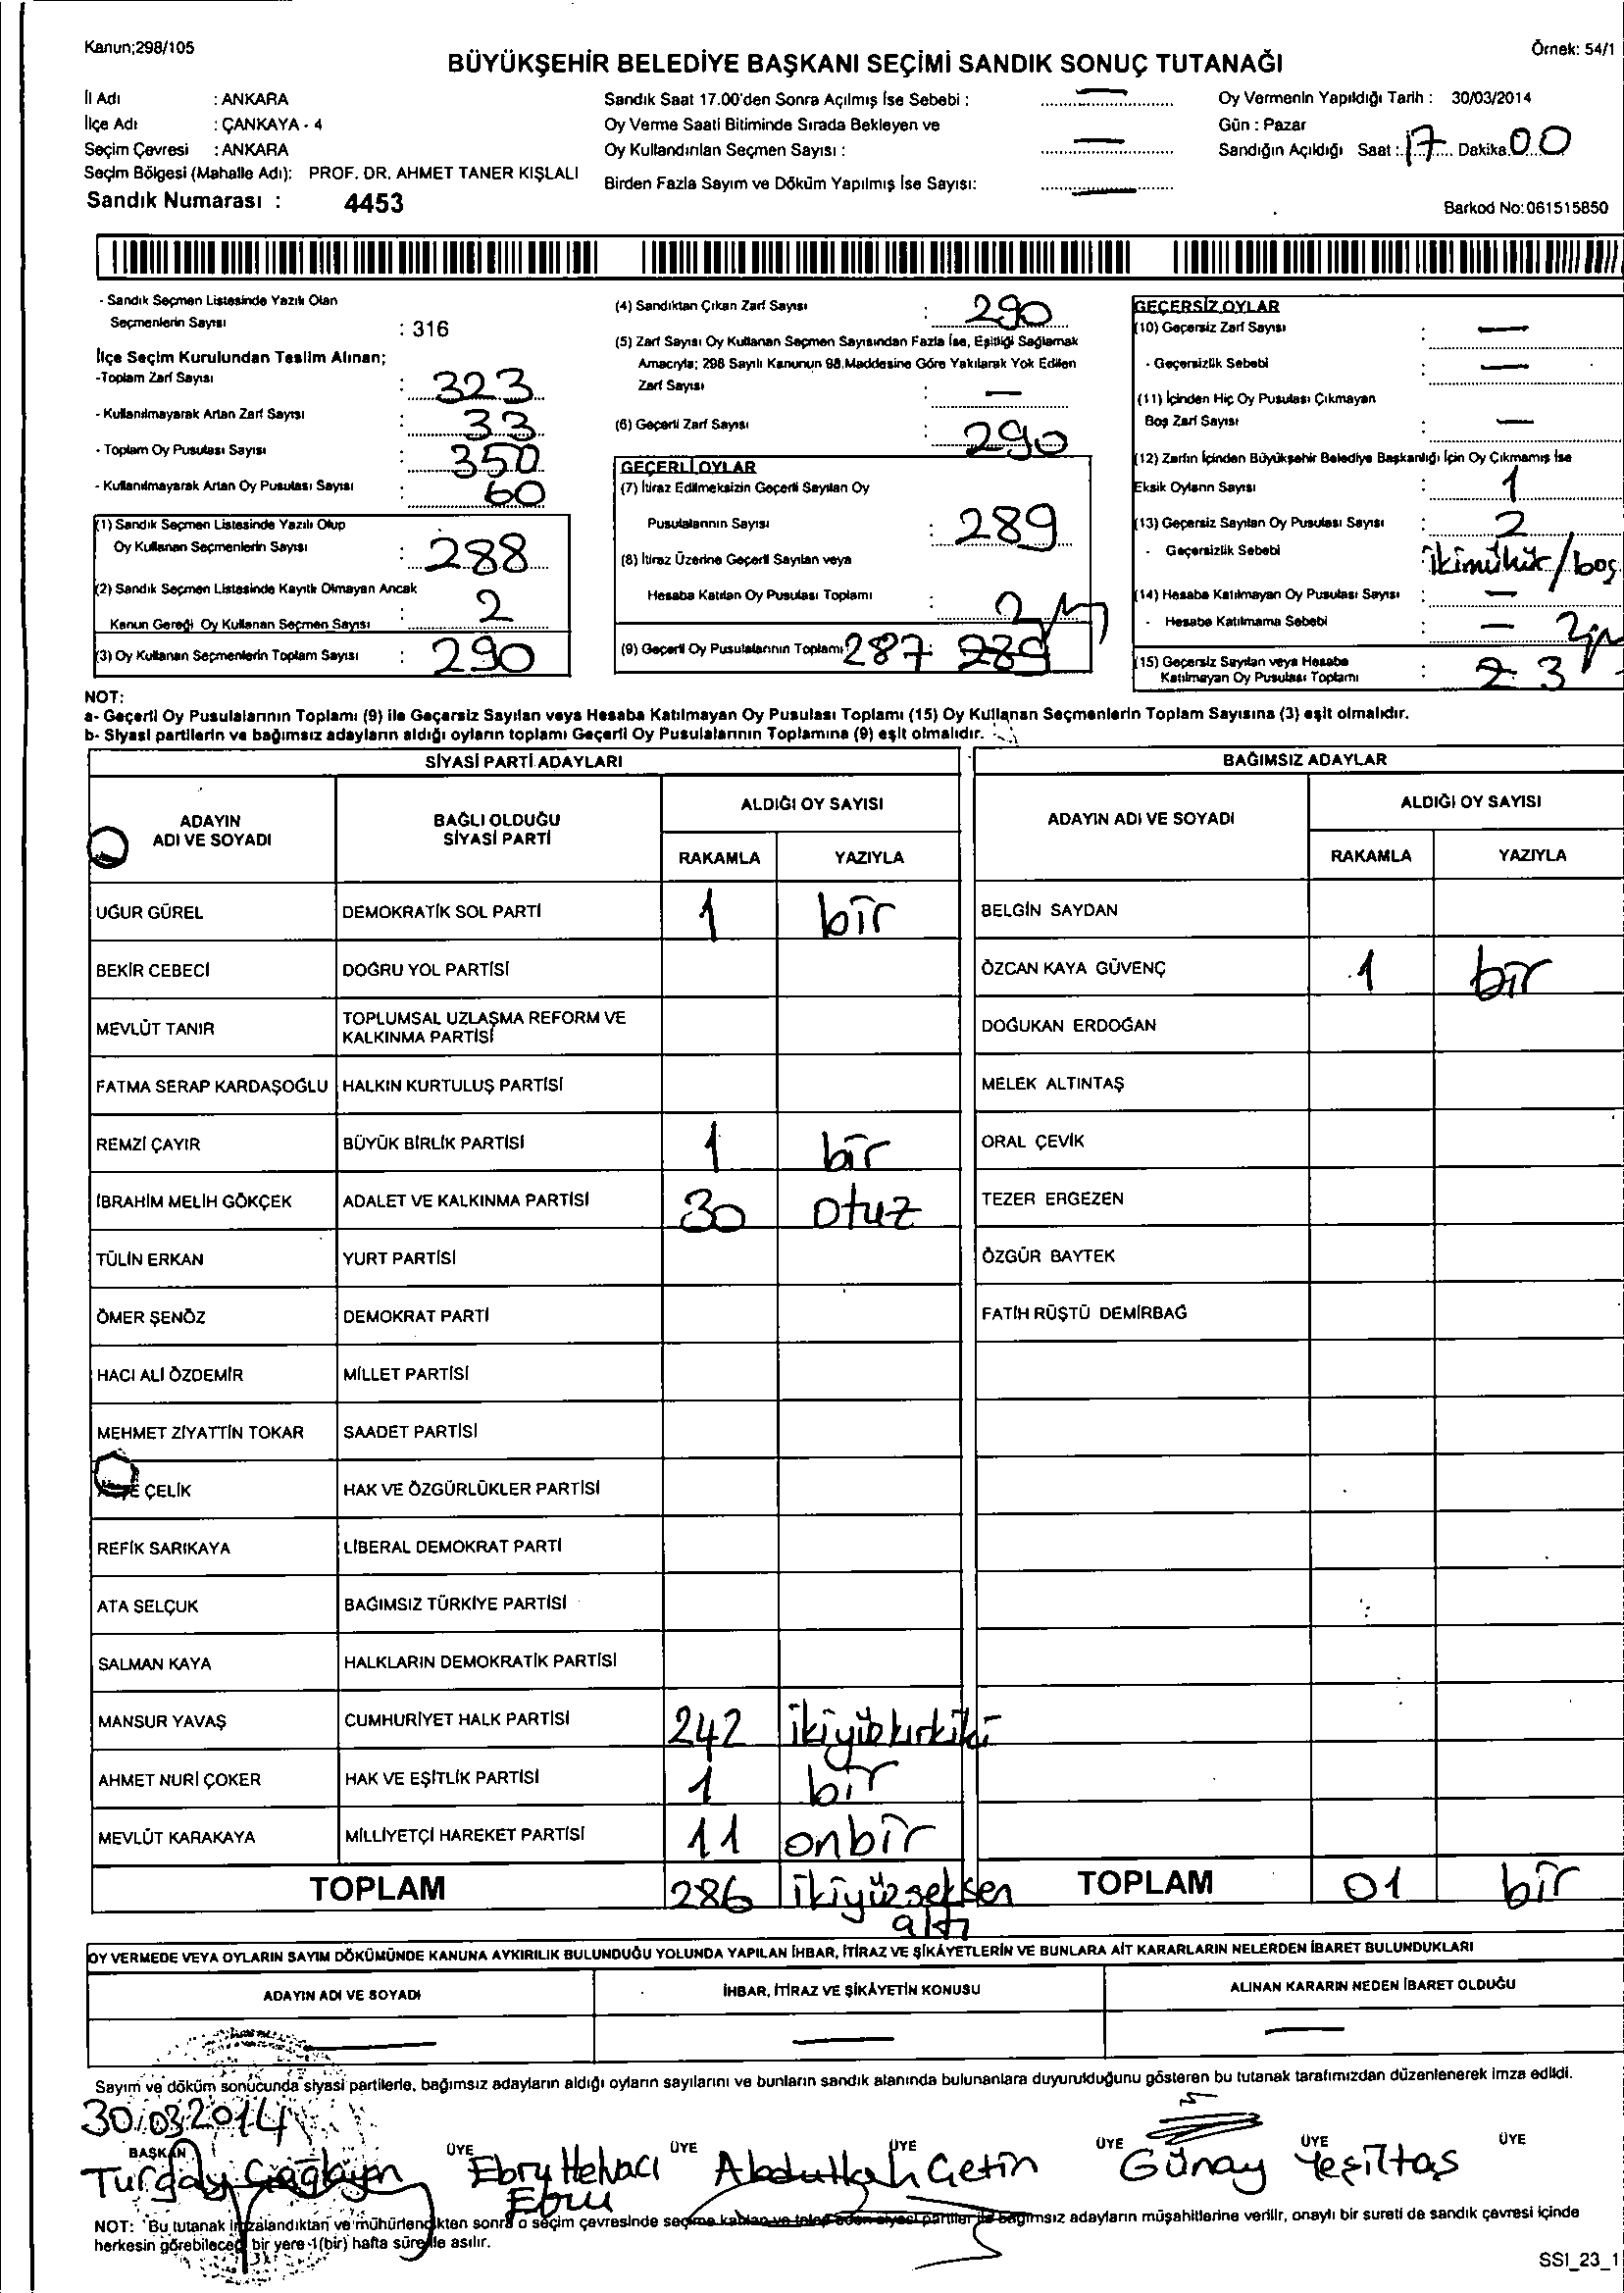 Kanun;298/105
Örnek: 54/1
BÜYÜKŞEHİR BELEDİYE BAŞKANI SEÇİMİ SANDIK SONUÇ TUTANAĞI
İl Adı : ANKARA
İlçe Adı : ÇANKAYA - 4
Seçim Çevresi : ANKARA
Seçim Bölgesi (Mahalle Adı): PROF. DR. AHMET TANER KIŞLALI
Sandık Numarası : 4453
Sandık Saat 17.00'den Sonra Açılmış İse Sebebi : —
Oy Verme Saati Bitiminde Sırada Bekleyen ve
Oy Kullandırılan Seçmen Sayısı : —
Birden Fazla Sayım ve Döküm Yapılmış İse Sayısı: —
Oy Vermenin Yapıldığı Tarih : 30/03/2014
Gün : Pazar
Sandığın Açıldığı Saat : 17 Dakika 00
Barkod No:061515850
- Sandık Seçmen Listesinde Yazılı Olan
Seçmenlerin Sayısı : 316
İlçe Seçim Kurulundan Teslim Alınan;
-Toplam Zarf Sayısı : 323
- Kullanılmayarak Artan Zarf Sayısı : 33
- Toplam Oy Pusulası Sayısı : 350
- Kullanılmayarak Artan Oy Pusulası Sayısı : 60
(1) Sandık Seçmen Listesinde Yazılı Olup
Oy Kullanan Seçmenlerin Sayısı : 288
(2) Sandık Seçmen Listesinde Kayıtlı Olmayan Ancak
Kanun Gereği Oy Kullanan Seçmen Sayısı : 2
(3) Oy Kullanan Seçmenlerin Toplam Sayısı : 290
(4) Sandıktan Çıkan Zarf Sayısı : 290
(5) Zarf Sayısı Oy Kullanan Seçmen Sayısından Fazla İse, Eşitliği Sağlamak
Amacıyla; 298 Sayılı Kanunun 98.Maddesine Göre Yakılarak Yok Edilen
Zarf Sayısı : —
(6) Geçerli Zarf Sayısı : 290
GEÇERLİ OYLAR
(7) İtiraz Edilmeksizin Geçerli Sayılan Oy
Pusulalarının Sayısı : 289
(8) İtiraz Üzerine Geçerli Sayılan veya
Hesaba Katılan Oy Pusulası Toplamı : 2
(9) Geçerli Oy Pusulalarının Toplamı 287 : 289
GEÇERSİZ OYLAR
(10) Geçersiz Zarf Sayısı : —
- Geçersizlik Sebebi : —
(11) İçinden Hiç Oy Pusulası Çıkmayan
Boş Zarf Sayısı : —
(12) Zarfın İçinden Büyükşehir Belediye Başkanlığı İçin Oy Çıkmamış İse
Eksik Oyların Sayısı : 1
(13) Geçersiz Sayılan Oy Pusulası Sayısı : 2
- Geçersizlik Sebebi : ikimühür/boş
(14) Hesaba Katılmayan Oy Pusulası Sayısı : —
- Hesaba Katılmama Sebebi : —
(15) Geçersiz Sayılan veya Hesaba
Katılmayan Oy Pusulası Toplamı : 2 3
NOT:
a- Geçerli Oy Pusulalarının Toplamı (9) ile Geçersiz Sayılan veya Hesaba Katılmayan Oy Pusulası Toplamı (15) Oy Kullanan Seçmenlerin Toplam Sayısına (3) eşit olmalıdır.
b- Siyasi partilerin ve bağımsız adayların aldığı oyların toplamı Geçerli Oy Pusulalarının Toplamına (9) eşit olmalıdır.
SİYASİ PARTİ ADAYLARI
BAĞIMSIZ ADAYLAR
ADAYIN
ADI VE SOYADI
BAĞLI OLDUĞU
SİYASİ PARTİ
ALDIĞI OY SAYISI
RAKAMLA YAZIYLA
ADAYIN ADI VE SOYADI
ALDIĞI OY SAYISI
RAKAMLA YAZIYLA
UĞUR GÜREL DEMOKRATİK SOL PARTİ 1 bir BELGİN SAYDAN
BEKİR CEBECİ DOĞRU YOL PARTİSİ ÖZCAN KAYA GÜVENÇ 1 bir
MEVLÜT TANIR TOPLUMSAL UZLAŞMA REFORM VE
KALKINMA PARTİSİ DOĞUKAN ERDOĞAN
FATMA SERAP KARDAŞOĞLU HALKIN KURTULUŞ PARTİSİ MELEK ALTINTAŞ
REMZİ ÇAYIR BÜYÜK BİRLİK PARTİSİ 1 bir ORAL ÇEVİK
İBRAHİM MELİH GÖKÇEK ADALET VE KALKINMA PARTİSİ 30 otuz TEZER ERGEZEN
TÜLİN ERKAN YURT PARTİSİ ÖZGÜR BAYTEK
ÖMER ŞENÖZ DEMOKRAT PARTİ FATİH RÜŞTÜ DEMİRBAĞ
HACI ALİ ÖZDEMİR MİLLET PARTİSİ
MEHMET ZİYATTİN TOKAR SAADET PARTİSİ
ÇELİK HAK VE ÖZGÜRLÜKLER PARTİSİ
REFİK SARIKAYA LİBERAL DEMOKRAT PARTİ
ATA SELÇUK BAĞIMSIZ TÜRKİYE PARTİSİ
SALMAN KAYA HALKLARIN DEMOKRATİK PARTİSİ
MANSUR YAVAŞ CUMHURİYET HALK PARTİSİ 242 ikiyüzkırkiki
AHMET NURİ ÇOKER HAK VE EŞİTLİK PARTİSİ 1 bir
MEVLÜT KARAKAYA MİLLİYETÇİ HAREKET PARTİSİ 11 onbir
TOPLAM 286 ikiyüzseksen
altı
TOPLAM 01 bir
OY VERMEDE VEYA OYLARIN SAYIM DÖKÜMÜNDE KANUNA AYKIRILIK BULUNDUĞU YOLUNDA YAPILAN İHBAR, İTİRAZ VE ŞİKÂYETLERİN VE BUNLARA AİT KARARLARIN NELERDEN İBARET BULUNDUKLARI
ADAYIN ADI VE SOYADI İHBAR, İTİRAZ VE ŞİKÂYETİN KONUSU ALINAN KARARIN NEDEN İBARET OLDUĞU
— — —
Sayım ve döküm sonucunda siyasi partilerle, bağımsız adayların aldığı oyların sayılarını ve bunların sandık alanında bulunanlara duyurulduğunu gösteren bu tutanak tarafımızdan düzenlenerek imza edildi.
30.03.2014
BAŞKAN ÜYE ÜYE ÜYE ÜYE ÜYE ÜYE
Turgay Çağlayan Ebru Helvacı Abdullah Çetin Günay Yeşiltaş
Ebru
NOT: Bu tutanak imzalandıktan ve mühürlendikten sonra o seçim çevresinde seçime katılan ve talep eden siyasi partiler ile bağımsız adayların müşahitlerine verilir, onaylı bir sureti de sandık çevresi içinde
herkesin görebileceği bir yere 1(bir) hafta süre ile asılır.
SSI_23_1